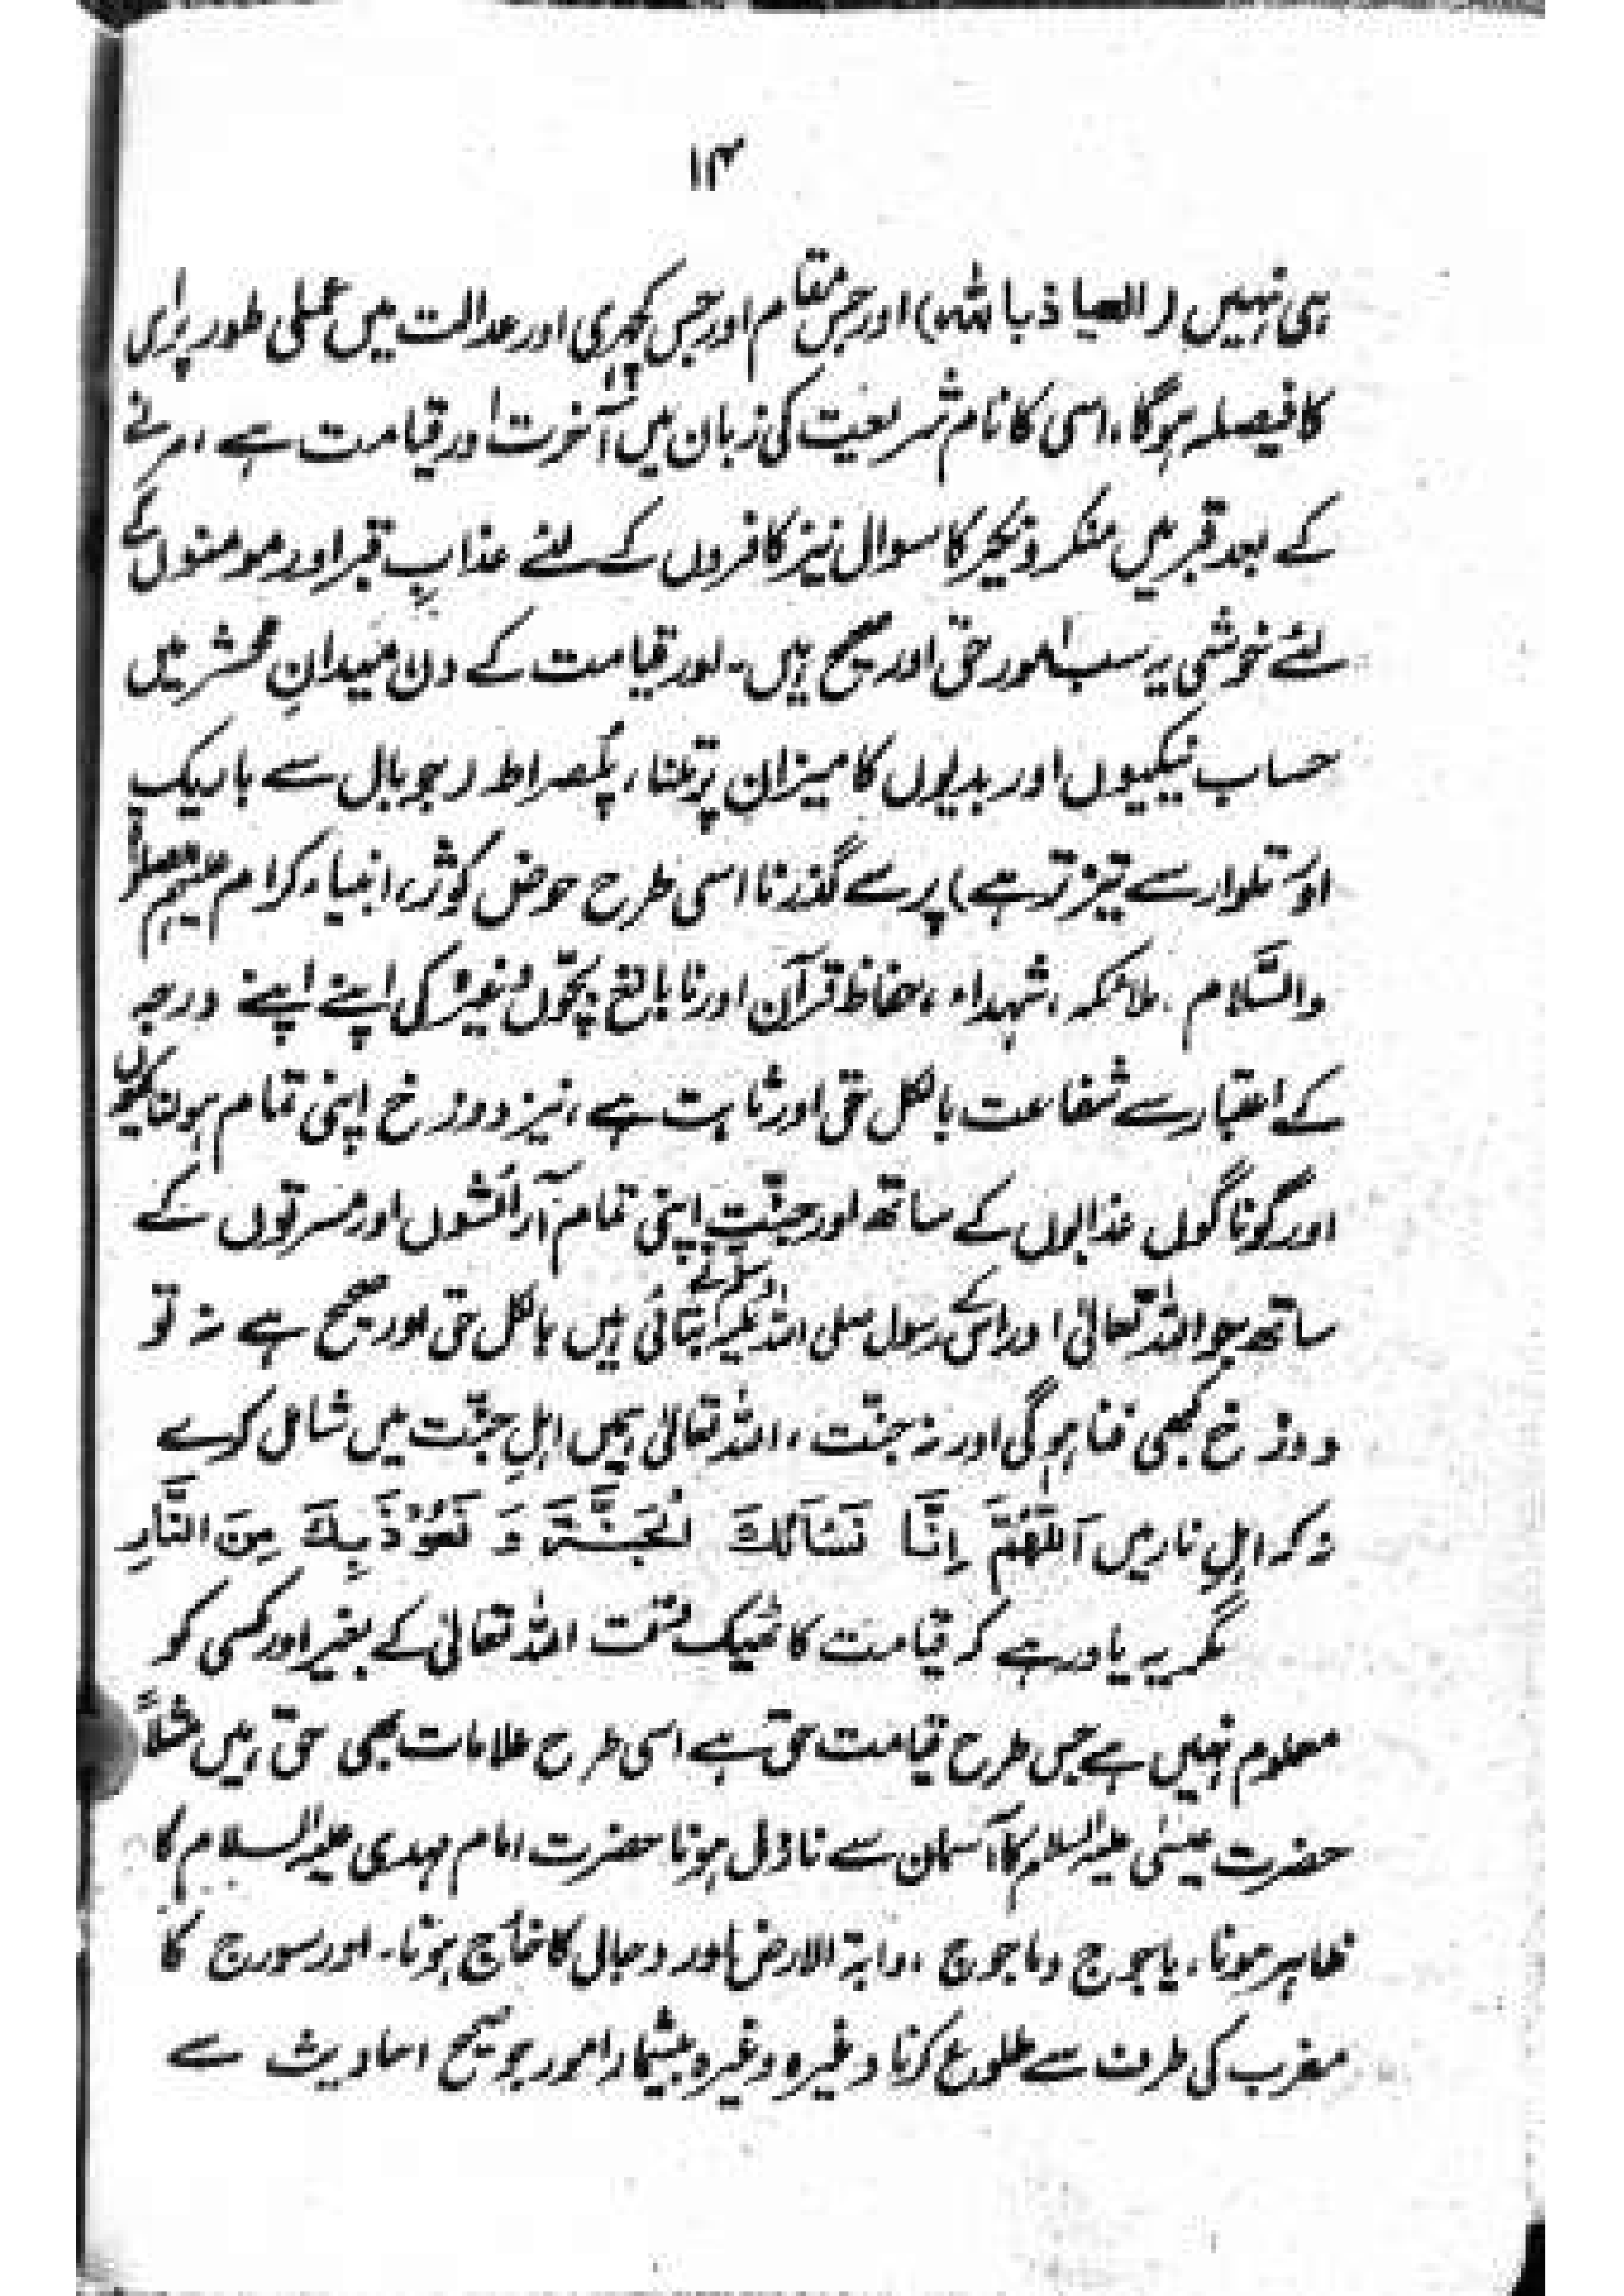 ۱۳
ہی نہیں (العیاذ باللہ) اور جس مقام اور جس کچہری اور عدالت میں عملی طور پر اس
کا فیصلہ ہوگا، اسی کا نام شریعت کی زبان میں آخرت اور قیامت ہے، مرنے
کے بعد قبر میں منکر و نکیر کا سوال نیز کافروں کے لئے عذابِ قبر اور مومنوں کے
لئے خوشی یہ سب امور حق اور صحیح ہیں۔ اور قیامت کے دن میدانِ محشر میں
حساب نیکیوں اور بدیوں کا میزان پر تلنا، پلصراط (جو بال سے باریک
اور تلوار سے تیز تر ہے) پر سے گذرنا اسی طرح حوض کوثر، انبیاء کرام علیہم الصلوٰۃ
والسّلام، ملائکہ، شہداء، حفاظ قرآن اور نابالغ بچّوں وغیرہ کی اپنے اپنے درجہ
کے اعتبار سے شفاعت بالکل حق اور ثابت ہے، نیز دوزخ اپنی تمام ہولناکیوں
اور گوناگوں عذابوں کے ساتھ اور جنّت اپنی تمام آرائشوں اور مسرتوں کے
ساتھ جو اللہ تعالیٰ اور اس کے رسول صلی اللہ علیہ وسلم نے بتائی ہیں بالکل حق اور صحیح ہے نہ تو
دوزخ کبھی فنا ہوگی اور نہ جنّت، اللہ تعالیٰ ہمیں اہلِ جنّت میں شامل کرے
نہ کہ اہلِ نار میں اَللّٰهُمَّ اِنَّا نَسْأَلُكَ الْجَنَّةَ وَ نَعُوْذُ بِكَ مِنَ النَّارِ
مگر یہ یاد رہے کہ قیامت کا ٹھیک وقت اللہ تعالیٰ کے بغیر اور کسی کو
معلوم نہیں ہے جس طرح قیامت حق ہے اسی طرح علامات بھی حق ہیں مثلاً
حضرت عیسٰی علیہ السلام کا آسمان سے نازل ہونا حضرت امام مہدی علیہ السلام کا
ظاہر ہونا، یاجوج و ماجوج، دابۃ الارض اور دجال کا خارج ہونا۔ اور سورج کا
مغرب کی طرف سے طلوع کرنا وغیرہ وغیرہ بیشمار امور جو صحیح احادیث سے